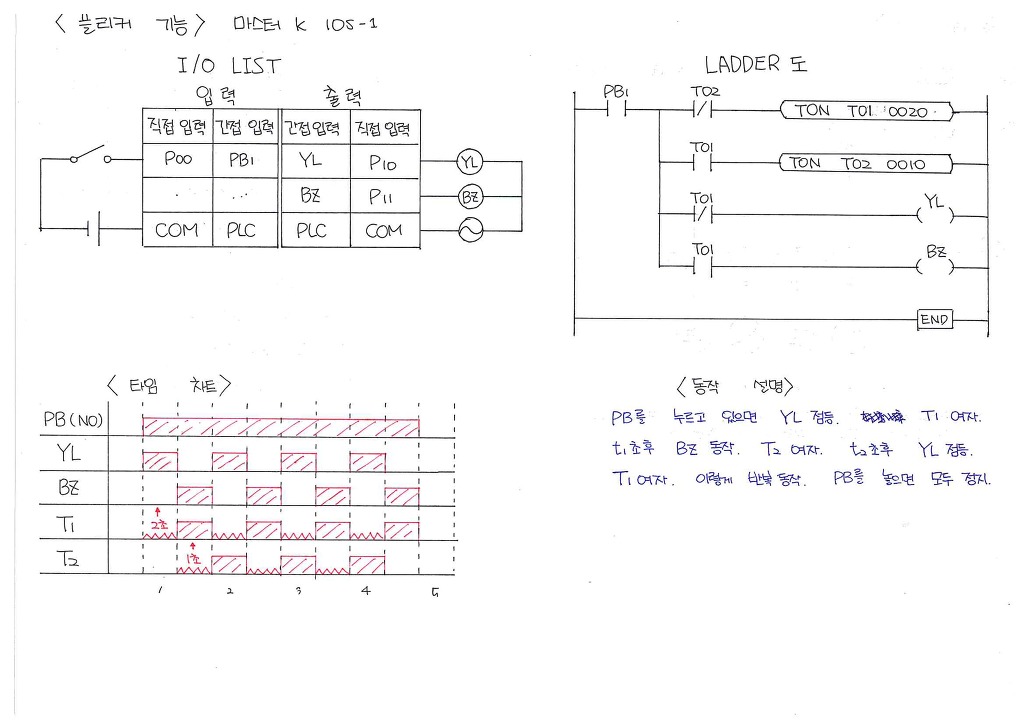 〈 플리커 기능 〉 마스터 K 10S-1
I/O LIST
입력 출력
직접 입력 간접 입력 간접 입력 직접 입력
P00 PB1 YL P10 YL
· · ... BZ P11 BZ
COM PLC PLC COM
LADDER 도
PB1 T02 TON T01 0020
T01 TON T02 0010
T01 YL
T01 BZ
END
〈 타임 차트 〉
PB(NO)
YL
BZ
2초
T1
1초
T2
1 2 3 4 5
〈 동작 설명 〉
PB를 누르고 있으면 YL 점등. T1 여자.
t1초후 BZ 동작. T2 여자. t2초후 YL 점등.
T1여자. 이렇게 반복 동작. PB를 놓으면 모두 정지.